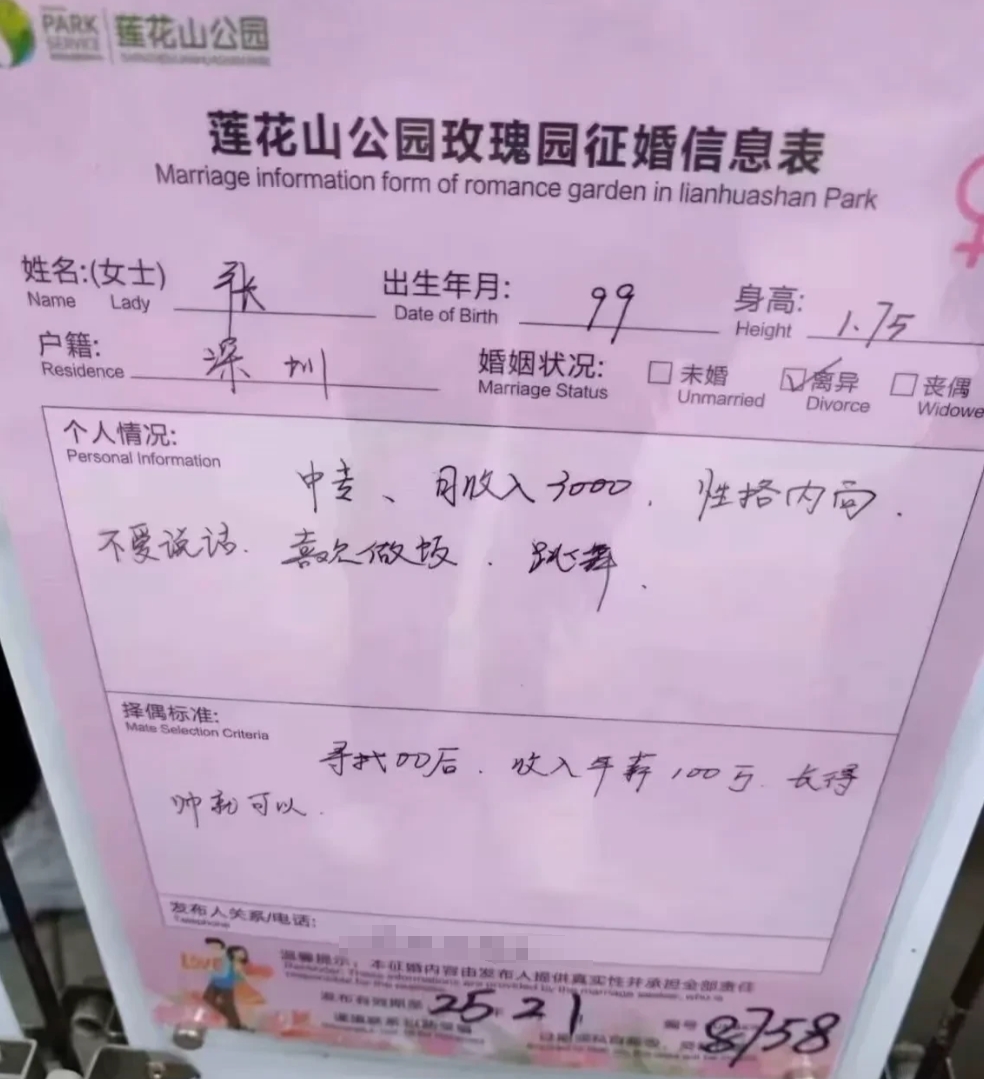 PARK 莲花山公园
SERVICE
莲花山公园玫瑰园征婚信息表
Marriage information form of romance garden in lianhuashan Park
姓名:(女士) 张 出生年月: 99 身高: 1.75
Name Lady Date of Birth Height
户籍: 深圳 婚姻状况: 未婚 离异 丧偶
Residence Marriage Status Unmarried Divorce Widowe
个人情况:
Personal Information
中专、月收入3000. 性格内向.
不爱说话. 喜欢做饭. 跳舞.
择偶标准:
Mate Selection Criteria
寻找00后. 收入年薪100万. 长得
帅就可以.
发布人关系/电话:
Telephone
Love
温馨提示: 本征婚内容由发布人提供真实性并承担全部责任
发布有效期至 25年 21
编号 8758